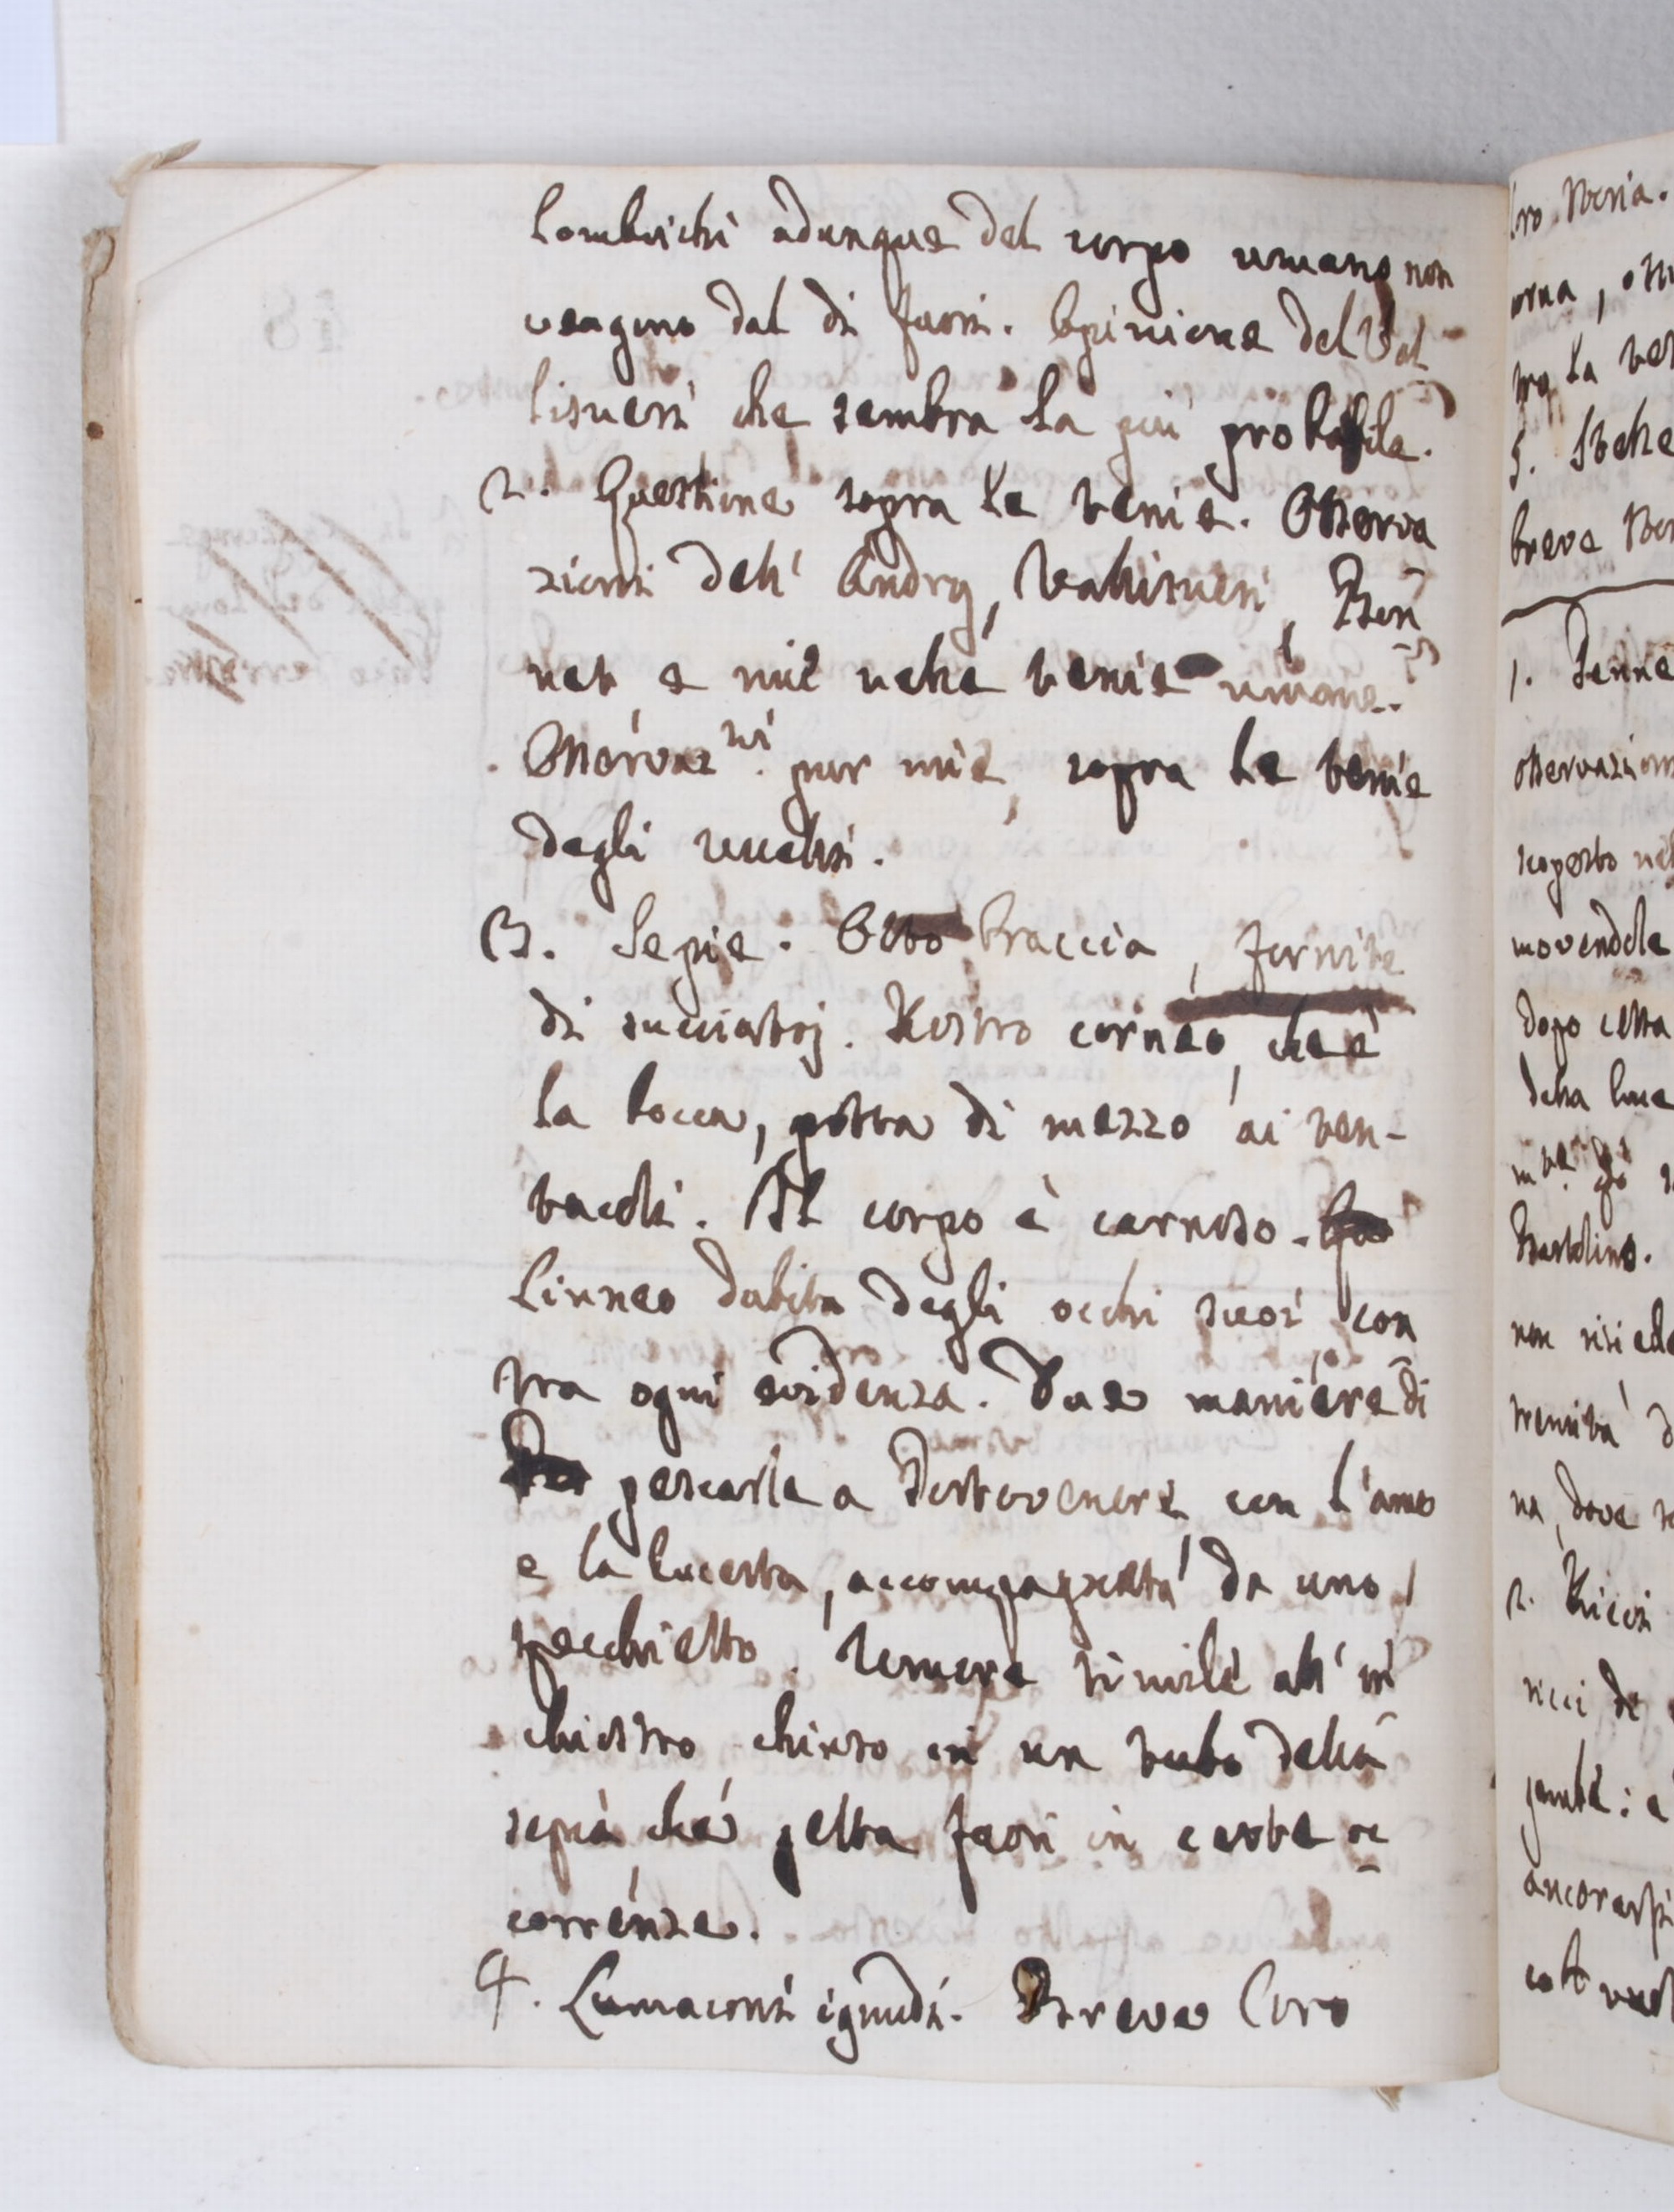 Lombrichi adunque del corpo umano non
vengono dal di fuori. Opinione del Val
lisneri che sembra la più probabile.
2. Questione sopra le tenie. Osserva
zioni dell' Andry, Vallisneri, Bon
net e mie nelle tenie umane.
Osservaz.ni pur mie, sopra le tenie
degli uccelli.
3. Sepie. Otto braccia, fornite
di succiatoj. Rostro corneo, che è
la bocca, posta di mezzo ai ten-
tacoli. Il corpo è carnoso.
Linneo dubita degli occhi suoi con
tra ogni evidenza. Due maniere di
pescarle a Portovenere con l'amo
e la lucerta, accompagnata da uno
specchietto. Umore simile all' in
chiostro chiuso in un tubo della
sepia che getta fuori in certe oc
correnze.
4. Lumaconi ignudi. Breve loro
loro storia.
5. Stelle
breve
1. Penne
osservazioni
scoperto nel
movendole
dopo
della luce
Bartolino.
non risiede
na, dove
2. Ricci
ricci di
gambe: e